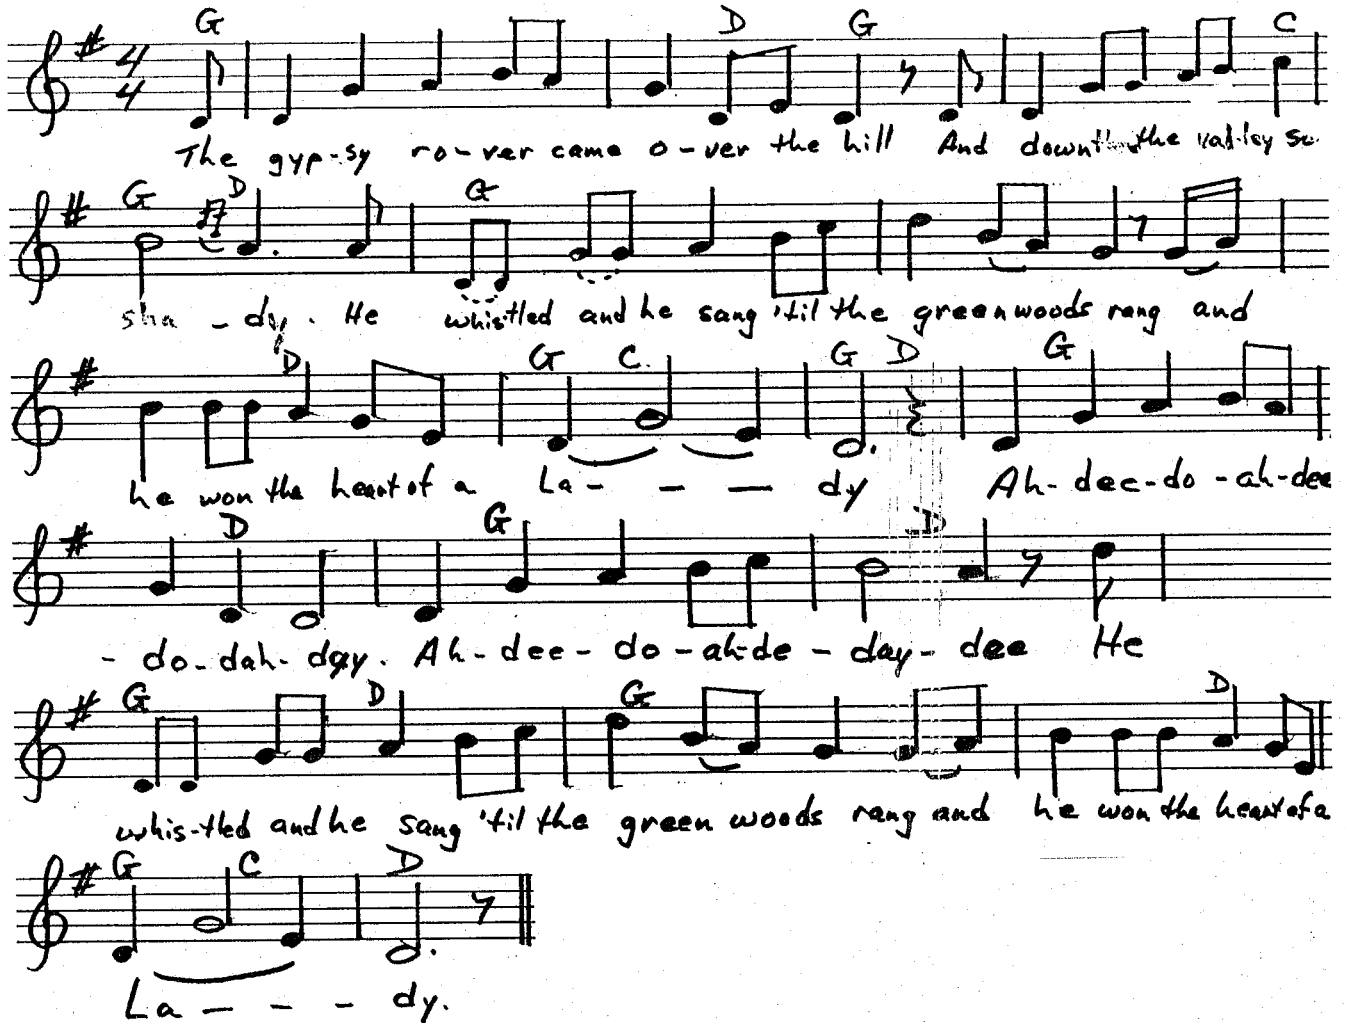 G D G C
4
4
The gyp-sy ro-ver came o-ver the hill And down the val-ley so
G D G
sha - dy. He whistled and he sang 'til the greenwoods rang and
D G C. G D G
he won the heart of a La - - - dy Ah-dee-do-ah-dee
D G D
- do-dah-day. Ah-dee-do-ah-de-day-dee He
G D G D
whis-tled and he sang 'til the green woods rang and he won the heart of a
G C D
La - - - dy.